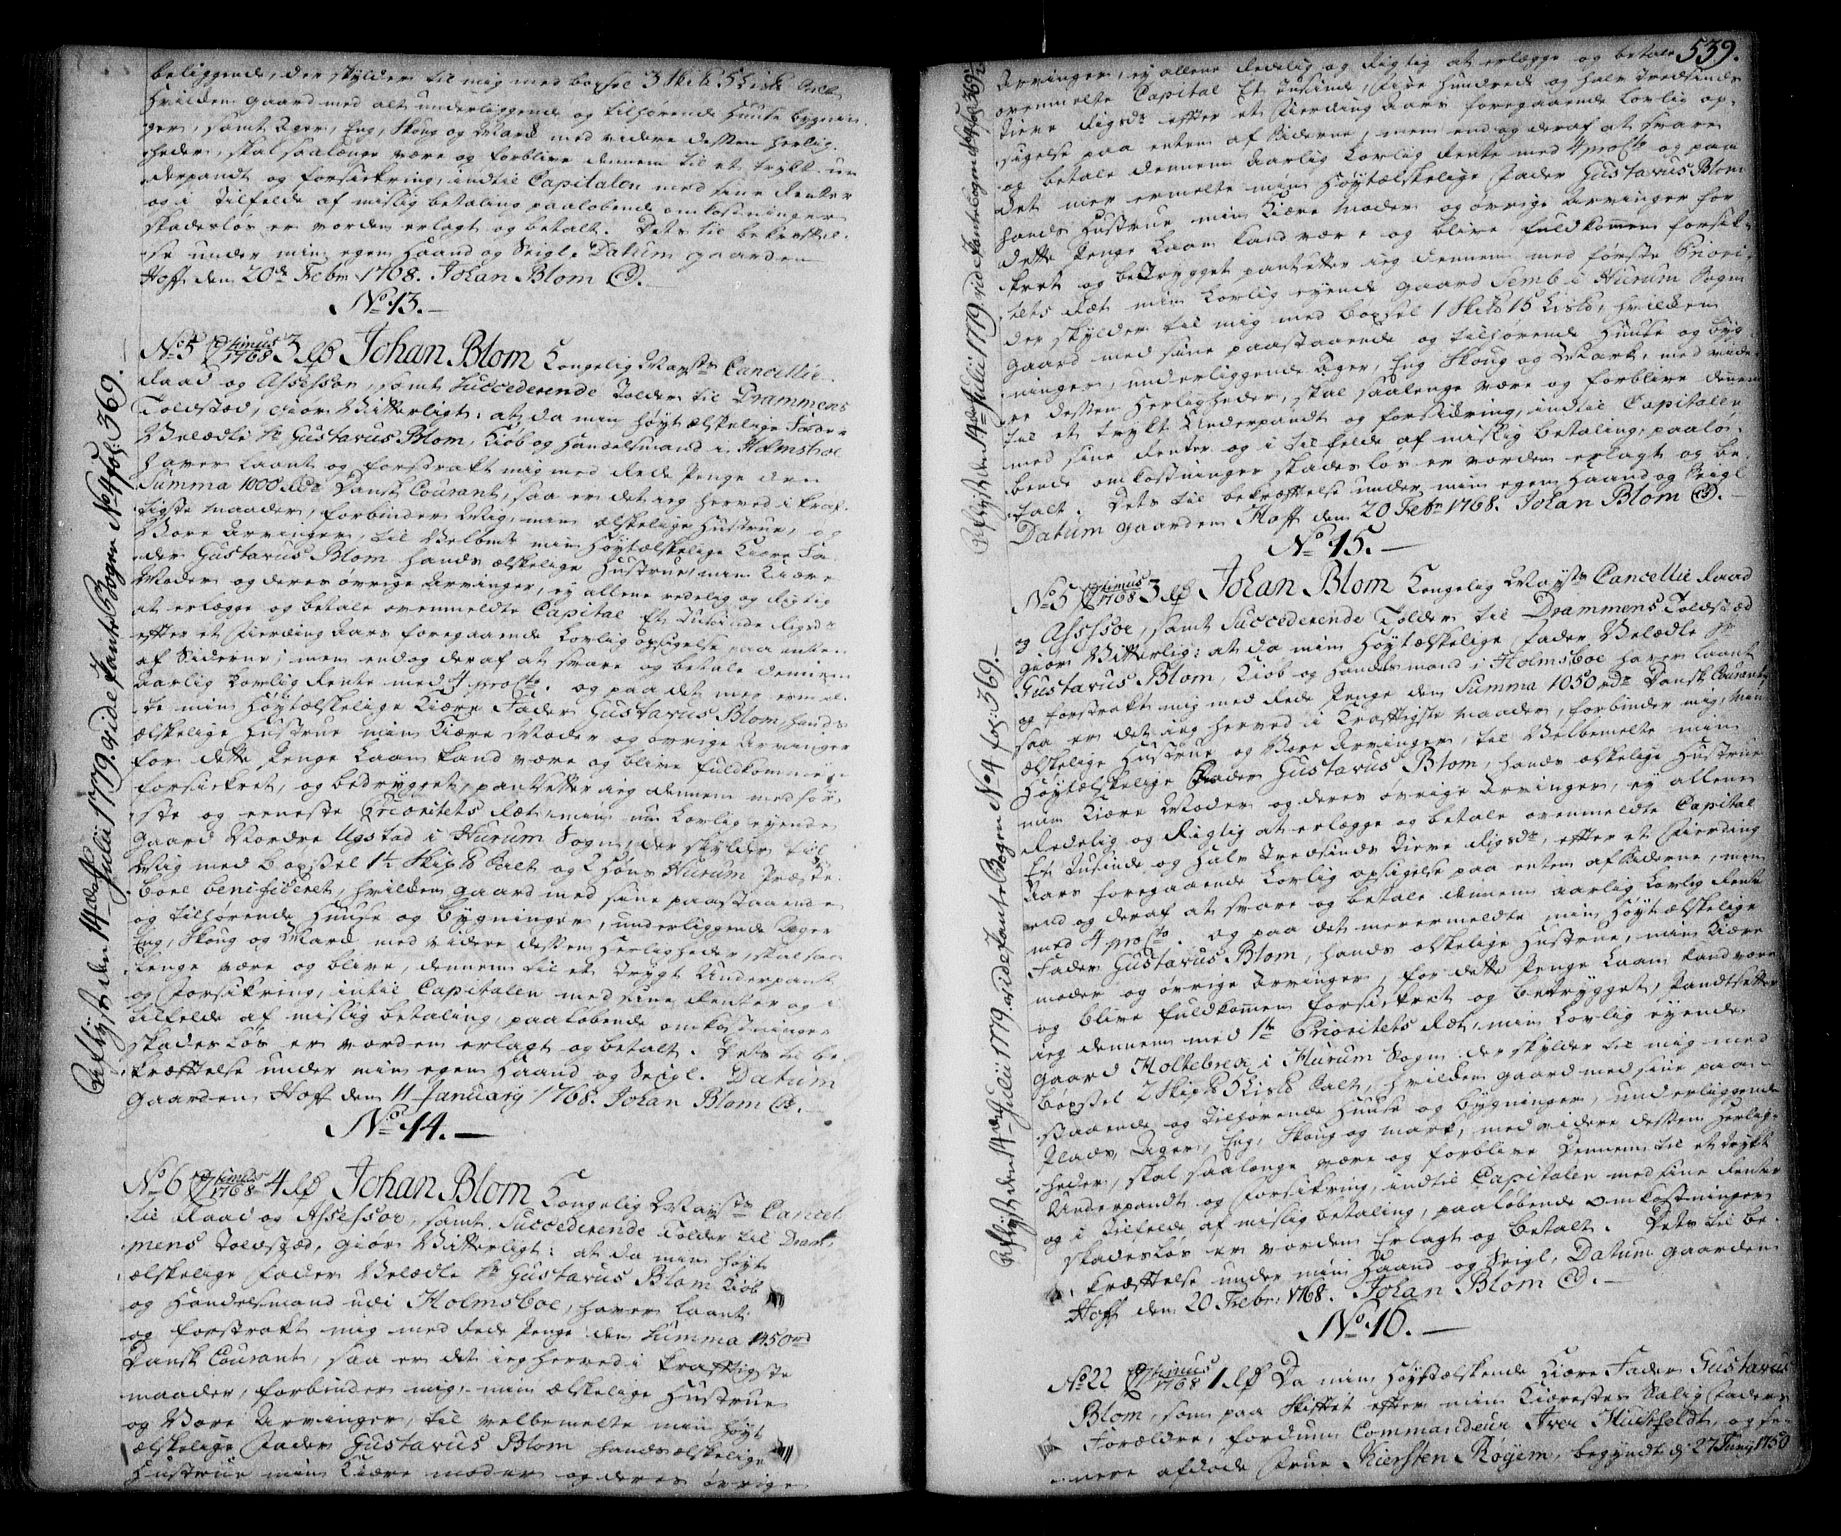 beliggende, der skylder til mig med boxsel 3 Sk℔ 5 Lis℔
hvilken gaard med alt underliggende og tilhørende Huuse bygnin-
ger, samt Ager, Eng, Skoug og Mark med videre dessen herlig-
heder, skal saalænge være og forblive dennem til et trykt un
derpandt og forsikring, indtil Capitalen med sine Renter
og i Tilfelde af mislig betaling paaløbende omkostninger
skadesløs er vorden erlagt og betalt. Dets til bekræftel-
se under min egen Haand og Seigl. Datum gaarden
Hoff den 20de Febr 1768. Johan Blom
No. 13.
No 5 1768 3 Johan Blom Kongelig Mayts Cancellie
Raad og Assessor, samt Succederende Tolder til Drammens
Toldsted, Giør Vitterligt: at da min høyt ælskelige Fader
Velædle Sr Gustavus Blom, Kiøb og Handelsmand i Holmsboe
haver laant og forstrakt mig med Rede Penge den
Summa 1000 Rdr Dansk Courant, saa er det ieg herved i kraf-
tigste maader, forbinder Mig, min ælskelige Hustrue, og
Vore Arvinger, til Velbemte min Høytælskelige Kiære Fa-
der Gustavus Blom hands ælskelige Hustrue, min Kiære
Moder og deres øvrige Arvinger, ey allene redelig og Rigtig
at erlægge og betale ovenmeldte Capital Et Tusinde Rigsdr
efter et Fierding Aars foregaaende Lovlig opsigelse paa enten
af Siderne; men endog deraf at svare og betale dennem
Aarlig Lovlig Rente med 4 procto. og paa det meer ermel-
te min Høytælskelige Kiære Fader Gustavus Blom, hands
ælskelige Hustrue min Kiære Moder og øvrige Arvinger
for dette Penge Laan kand være og blive fuldkommen
forsickret, og betrygget, pantsetter ieg dennem med før-
ste og eeneste Prioritets Ret, min Lovlig eyende
Gaard Nordre Ugstad i Hurum Sogn, der skylder til
Mig med Boxsel 1½ Skip℔ Salt og 2 Høns Hurum Præste-
boel benificeret, hvilken gaard med sine paastaaende
og tilhørende Huuse og Bygninger, underliggende Ager
Eng, Skoug og Mark med videre dessen Herligheder, skal saa
lenge være og blive, dennem til et trygt Underpant
og Forsikring, intil Capitalen med sine Renter og i
tilfelde af mislig betaling, paaløbende omkostninger
skadesløs er vorden erlagt og betalt. Dets til be-
kræftelse under min egen Haand og Seigl. Datum
Gaarden Hoff den 11 January 1768. Johan Blom
No. 14.
No 6 1768 4 Johan Blom Kongelig Mayts Cancel
lie Raad og Assessor, samt Succederende Tolder til Dram-
mens Toldsted, Giør Vitterligt: at da min høyt
ælskelige Fader Velædle Sr Gustavus Blom Kiøb
og Handelsmand udi Holmsboe, haver laant
og forstrakt mig med Rede Penge den Summa 1450 rdr
Dansk Courant, saa er det ieg herved i kraftigste
maader, forbinder mig, min ælskelige Hustrue
og Vore Arvinger, til velbemelte min høyt
ælskelige Fader Gustavus Blom hands ælskelige
Hustrue min Kiære moder og deres øvrige
Aflyst den 14de Julii 1779. vide Pante Bogen No 4 fol: 369.
539.
Arvinger, ey allene Redelig og Rigtig at erlægge og betale
ovenmelte Capital Et Tusinde, Fire Hundrede og halv Tredsinds
tiuve Rigsdr efter et Fierding Aars foregaaende Lovlig op-
sigelse paa enten af Siderne, men endog deraf at svare
og betale dennem Aarlig Lovlig Rente med 4 procto og paa
det mer ermelte min Høytælskelige Fader Gustavus Blom
hands Hustrue min Kiære Moder og øvrige Arvinger for
dette Penge Laan kand være og blive fuldkommen forsik-
kret og betrygget pantsetter ieg dennem med første Priori-
tets Ret min Lovlig eyende gaard Semb i Hurum Sogn
der skylder til mig med Boxsel 1 Skip℔ 15 Lis℔, hvilken
gaard med sine paastaaende og tilhørende Huuse og Byg-
ninger, underliggende Ager, Eng Skoug og Mark, med vide-
re dessen Herligheder, skal saalenge være og forblive dennem
til et trykt Underpandt og forsikring, indtil Capitalen
med sine Renter og i tilfelde af mislig betaling, paalø-
bende omkostninger skadesløs er vorden erlagt og be-
talt. Dets til bekræftelse under min egen Haand og Seigl
Datum gaarden Hoff den 20 Febr 1768. Johan Blom
No. 15.
No 5 1768 3 Johan Blom Kongelig Mayts Cancellie Raad
og Assessor, samt Succederende Tolder til Drammens Toldsted
giør Vitterlig: at da min Høytælskelige Fader Velædle Sr
Gustavus Blom, Kiøb og Handelsmand i Holmsboe haver laant
og forstrakt mig med Rede Penge den Summa 1050 rdr Dansk Courant
saa er det ieg herved i kraftigste Maader, forbinder mig, min
ælskelige Hustrue og Vore Arvinger, til Velbemelte min
Høytælskelige Fader Gustavus Blom, hands ælskelige Hustrue
min Kiære Moder og deres øvrige Arvinger, ey allene
Redelig og Rigtig at erlægge og betale ovenmeldte Capital
Et Tusinde og Halv Tredsinds tiuve Rigsdr, efter et Fierding
Aars foregaaende Lovlig opsigelse paa enten af Siderne, men
end og deraf at svare og betale dennem aarlig Lovlig Rente
med 4 procto. og paa det merermeldte min Høyt ælskelige
Fader Gustavus Blom, hands ælskelige Hustrue, min Kiære
moder og øvrige Arvinger, for dette Penge Laan kand være
og blive fuldkomen forsickret og betrygget, Pandtsetter
ieg dennem med 1te Prioritets Ret, min Lovlig eyende
gaard Holtebreck i Hurum Sogn der skylder til mig med
boxsel 2 Skip℔ 5 Lis℔ Salt, hvilken gaard med sine paa-
staaende og tilhørende Huuse og Bygninger, underliggende
Plads, Ager, Eng, Skoug og mark, med videre dessen Herlig-
heder, skal saalenge være og forblive Dennem til et trykt
Underpandt og forsikring, indtil Capitalen med sine Renter
og i Tilfelde af mislig betaling, paaløbende omkostninger
skadesløs er vorden Erlagt og betalt. Dets til be-
kræftelse under min Haand og Seigl, Datum gaarden
Hoff den 20 Febr: 1768. Johan Blom
No. 16.
No 22 1768 1 Da min Høystælskende Kiære Fader Gustavus
Blom, som paa Skiftet efter min Kiærestes Salig Fader
Forældre, fordum Commandeur Iver Huitfeldt, og
mere afdøde Frue Kiersten Røyem, begyndt d: 27 Juny 1750
Aflyst den 14de Julii 1779. vide Pantebogen No 4 fol: 369
Aflyst den 14de Julii 1779. vide Pante Bogen No 4 fol: 369.